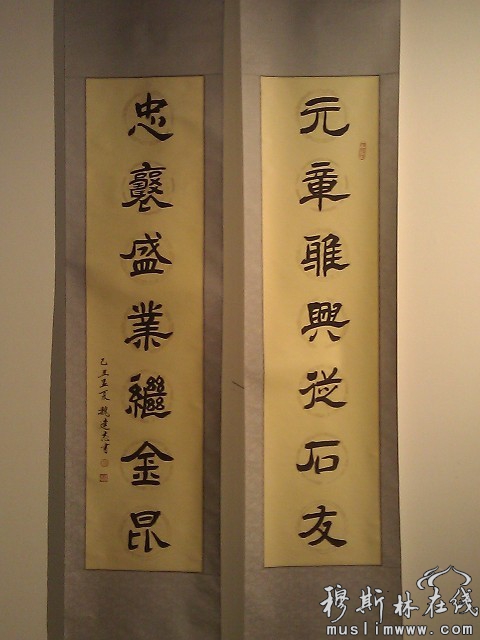 元章雅興從石友
忠襄盛業繼金昆
己丑孟夏
穆斯林在线
muslimwww.com